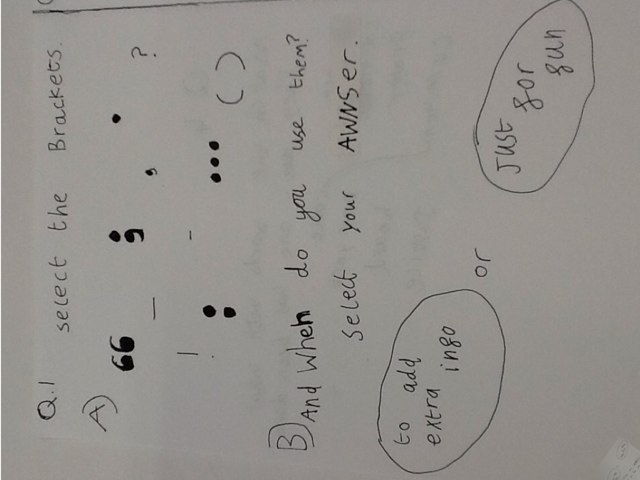 Q.1 select the Brackets.
A) 66 — ; , . ?
! : - ... ( )
B) And when do you use them?
select your AWNSer.
to add
extra ingo
or
Just gor
gun